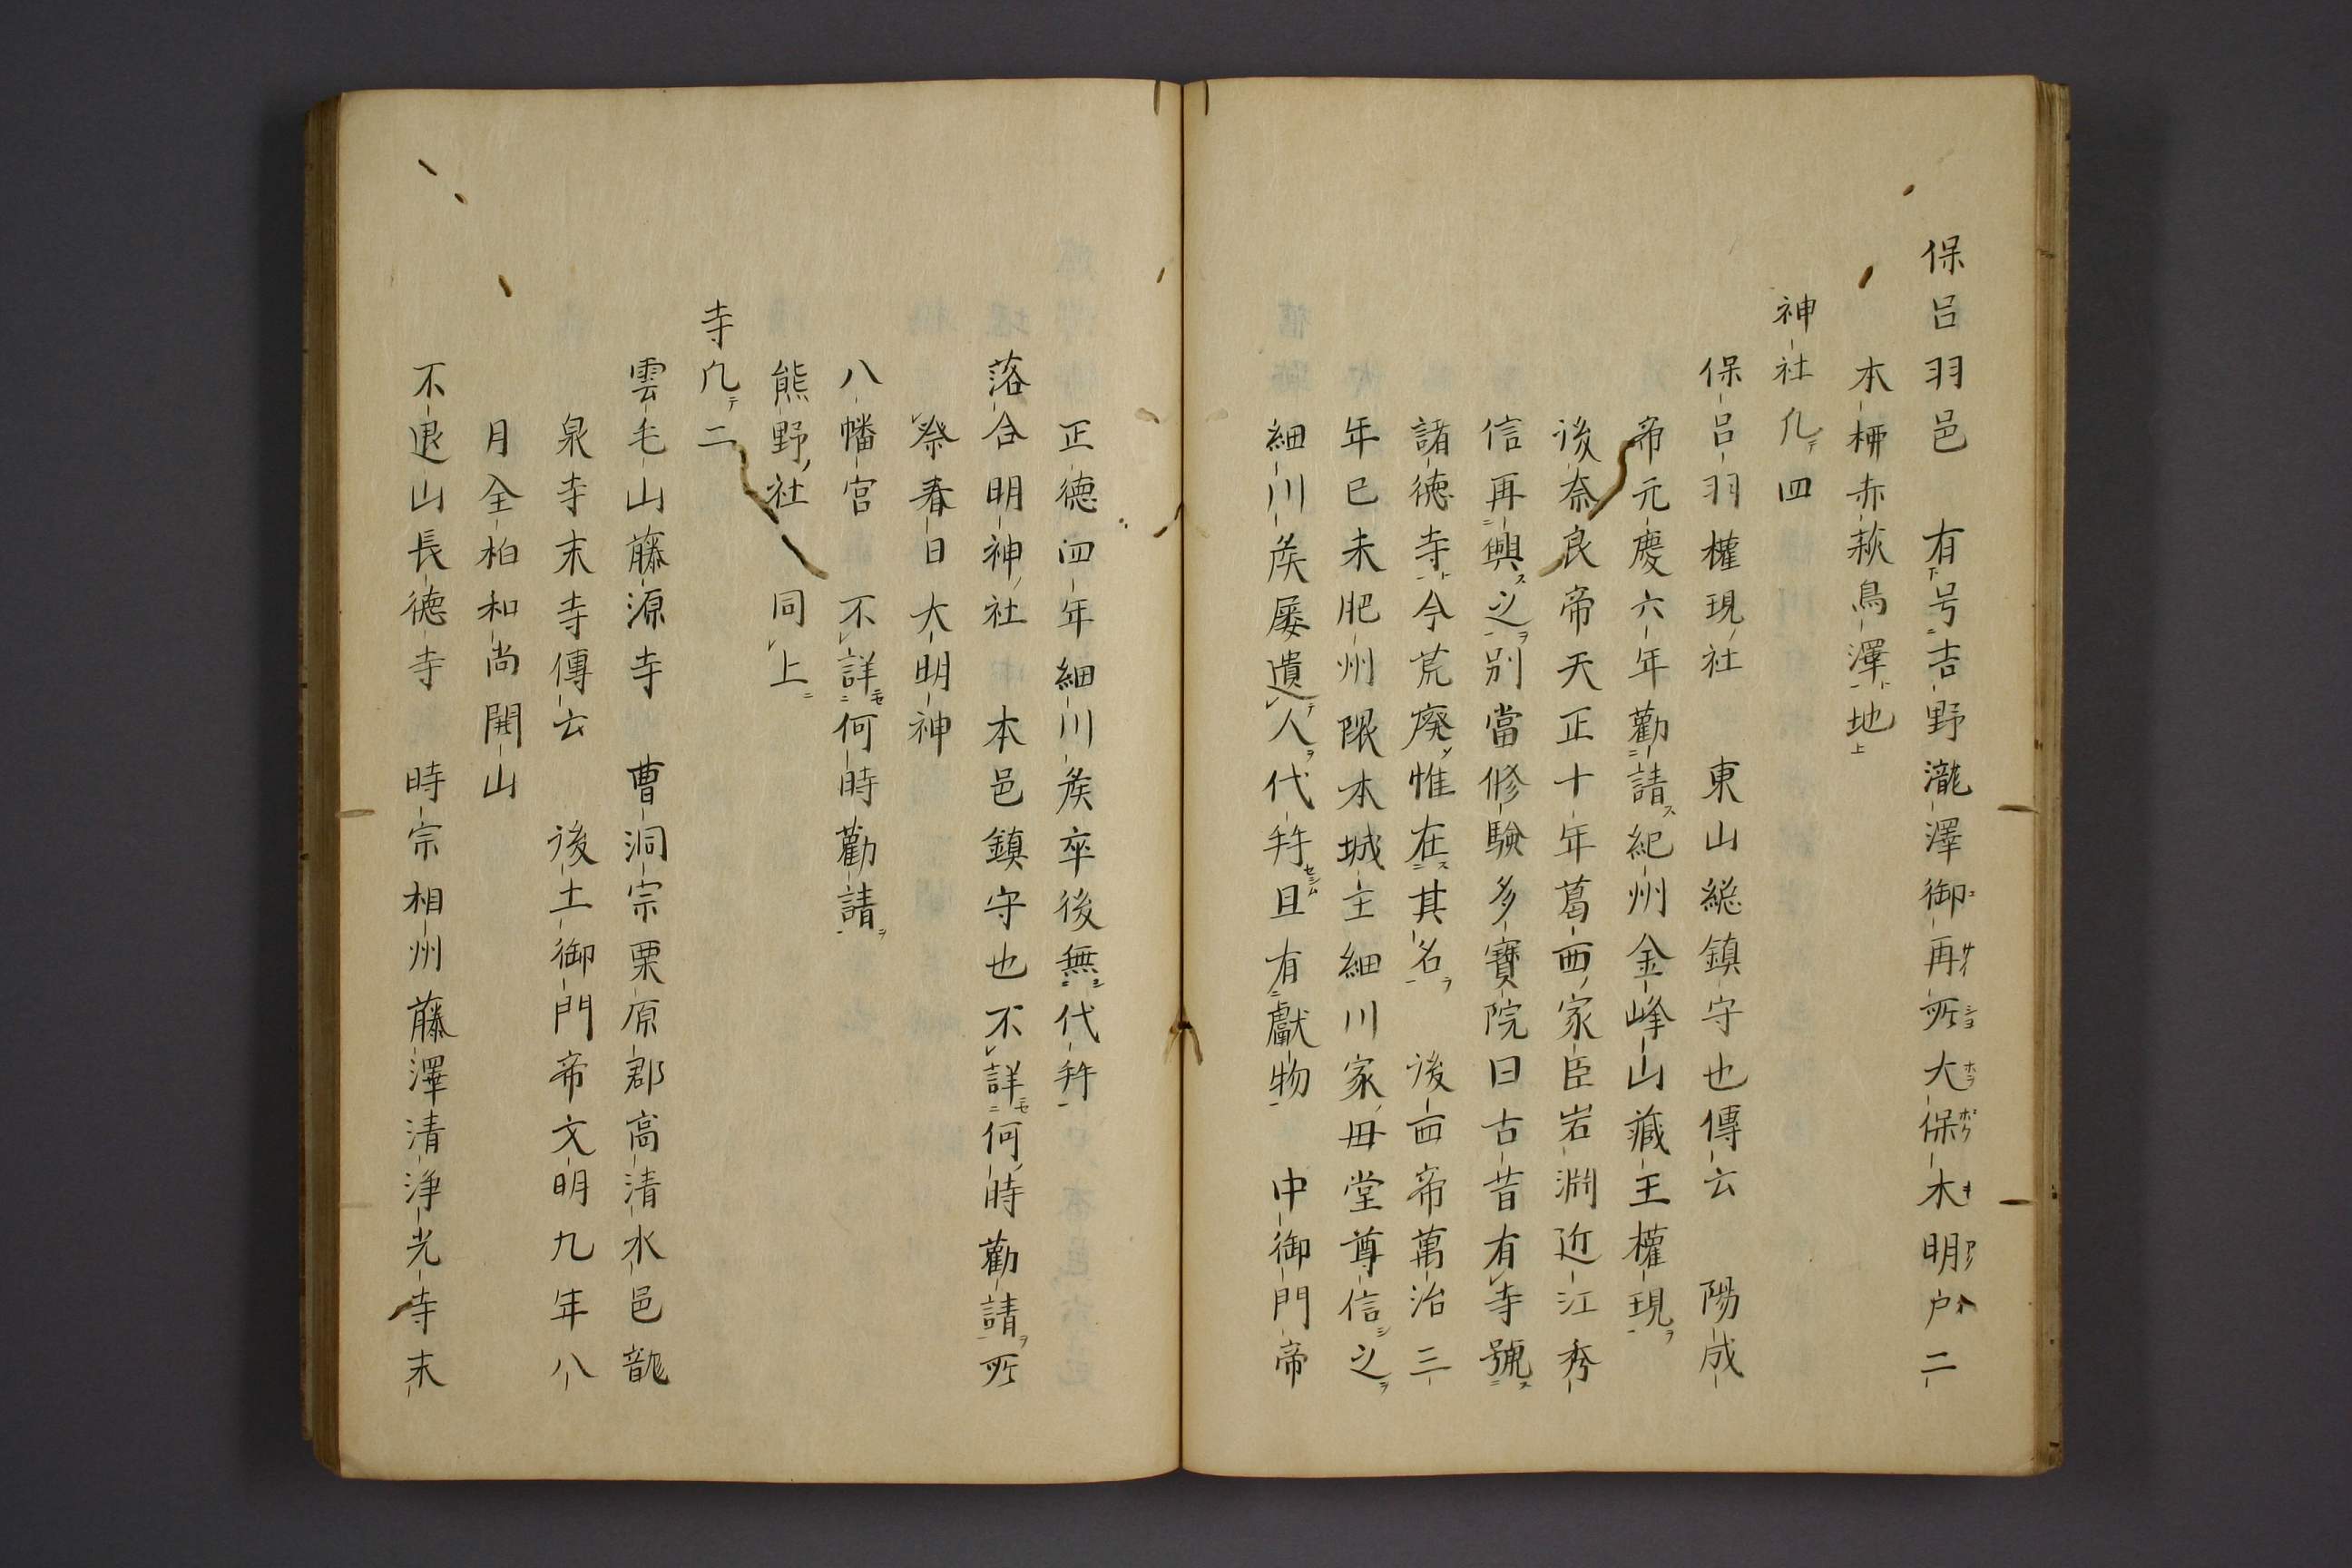 保呂羽邑 有号吉野瀧澤御再所大保木明戸二
本栁赤萩鳥澤地
神社凢四
保呂羽權現社 東山総鎮守也傳云 陽成
帝元慶六年勸請紀州金峰山藏王權現
後奈良帝天正十年葛西家臣岩淵近江秀
信再興之別當修驗多寶院曰古昔有寺號
諸徳寺今荒廢惟在其名 後西帝萬治三
年巳未肥州隈本城主細川家毋堂尊信之
細川矦屡遺人代拜且有獻物 中御門帝
正徳四年細川矦卒後無代拜
落合明神社 本邑鎮守也不詳何時勸請所
祭春日大明神
八幡宮 不詳何時勸請
熊野社 同上
寺凢二
雲毛山藤源寺 曹洞宗栗原郡高清水邑龍
泉寺末寺傳云 後土御門帝文明九年八
月全柏和尚開山
不退山長徳寺 時宗相州藤澤清浄光寺末